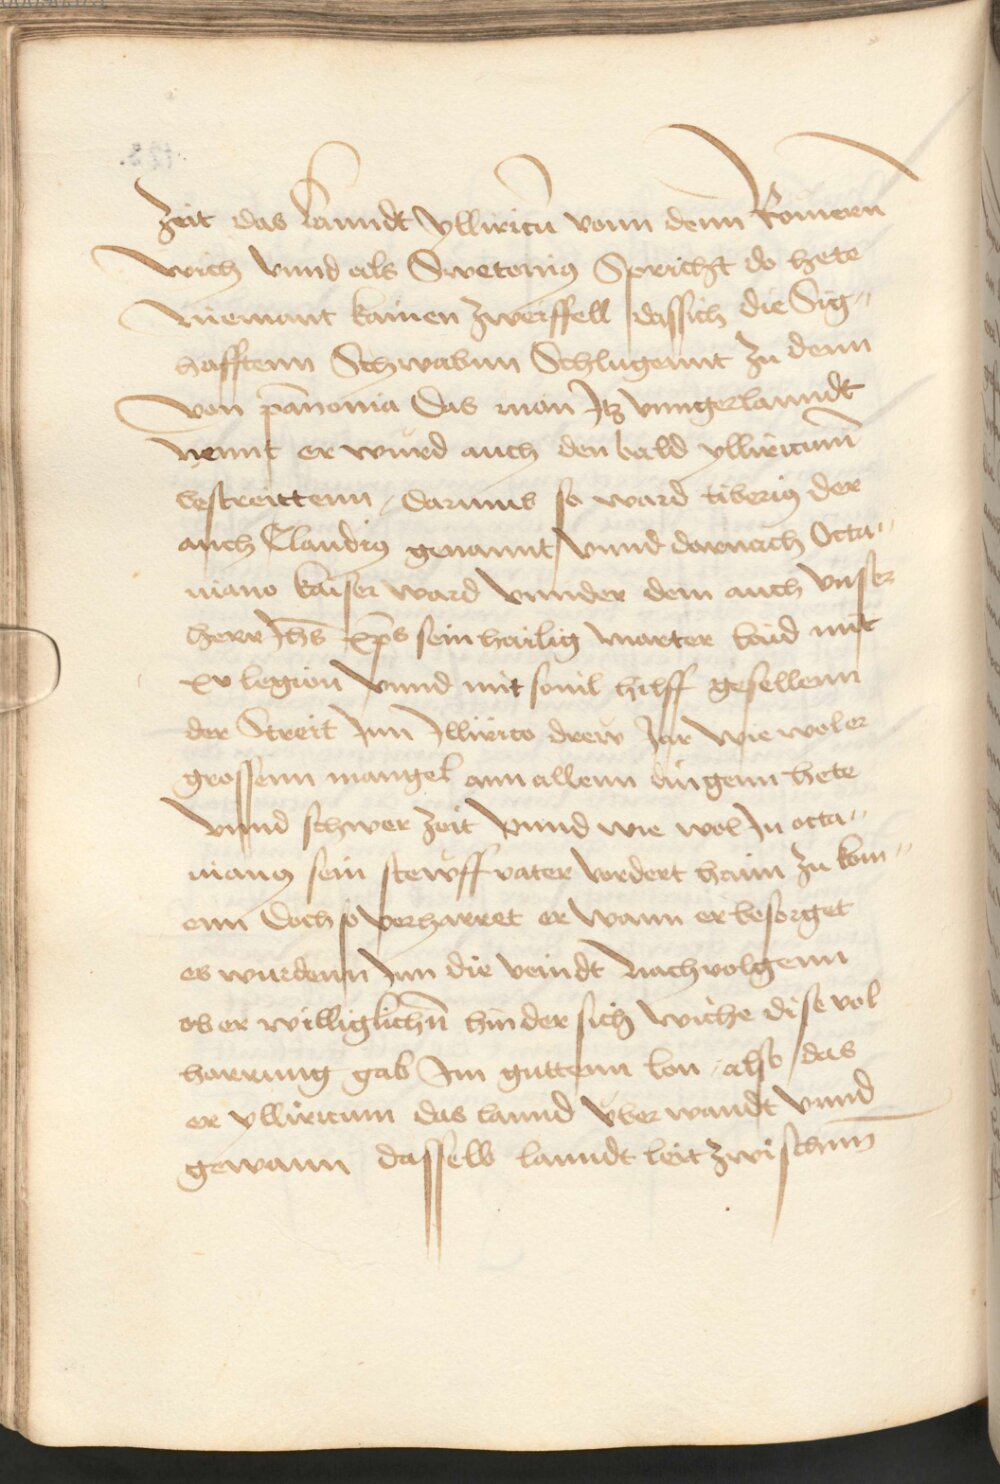 Zeit das lanndt ylliricu͂ vonn denn Romern
wich vnnd als Swetonius Spricht do hete
Niemant kainen zweiffell dassich die Sig„
hafftenn Schwabnn Schlugennt zu denn
von pa͂nonia das man Itz vnngerlanndt
nennt er wurd auch den bald ylliricum͂
bestreittenn, darumb so ward tiberius der
auch Claudius genannt vnnd darnach Octa„
niano kaiser ward vnnder dem auch vnser
herr Jhs͂ xp͂s sein hailig marter laid mit
xv legion vnnd mit souil hilff gesellenn
der Streit Inn Illirico drew Jar wie wol er
grossenn mangel ann allenn dingenn hete
vnnd schwer zeit vnnd wie wol In octa„
nianus sein stewff vater vordert haim zu kom„
enn doch so verharret er wann er besorget
es wurdenn Inn die veindt nachvolgenn
ob er willigliche͂n hinder sich wiche dise vol
harrung gab Im guttenn lon, also das
er ylliricum das lannd vber wandt vnnd
gewann dasselb lanndt leit zwischnn͂